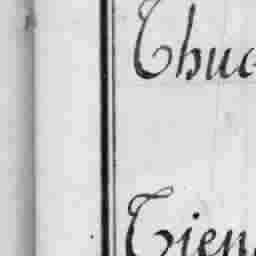 Thuc
Tien